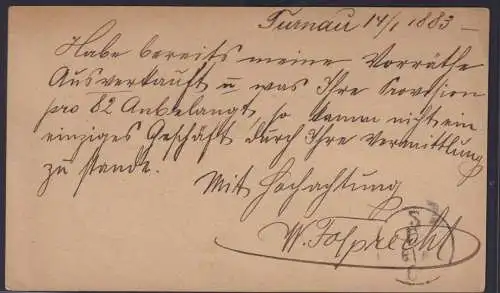 Turnau 14/1 1883 –
Habe bereits meine Vorräthe
Ausverkauft u was Ihre Provision
pro 82 Anbelangt, so kamm nicht ein
einziges Geschäft durch Ihre Vermittlung
zu stande.
Mit Hochachtung
W. Folprecht